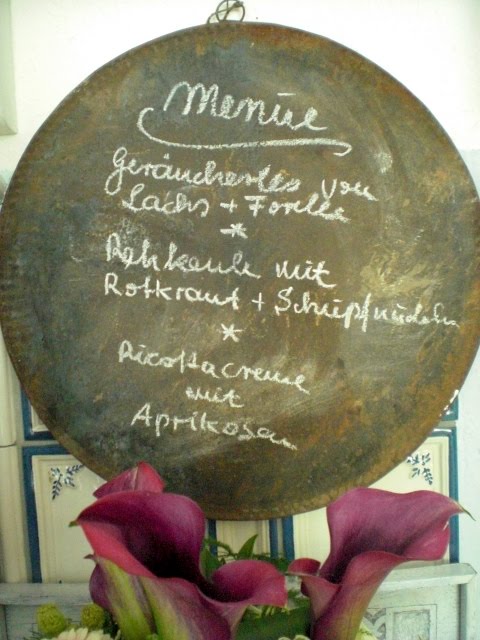 Menüe
Geräuchertes von
Lachs + Forelle
*
Rehkeule mit
Rotkraut + Schupfnudeln
*
Ricottacreme
mit
Aprikosen